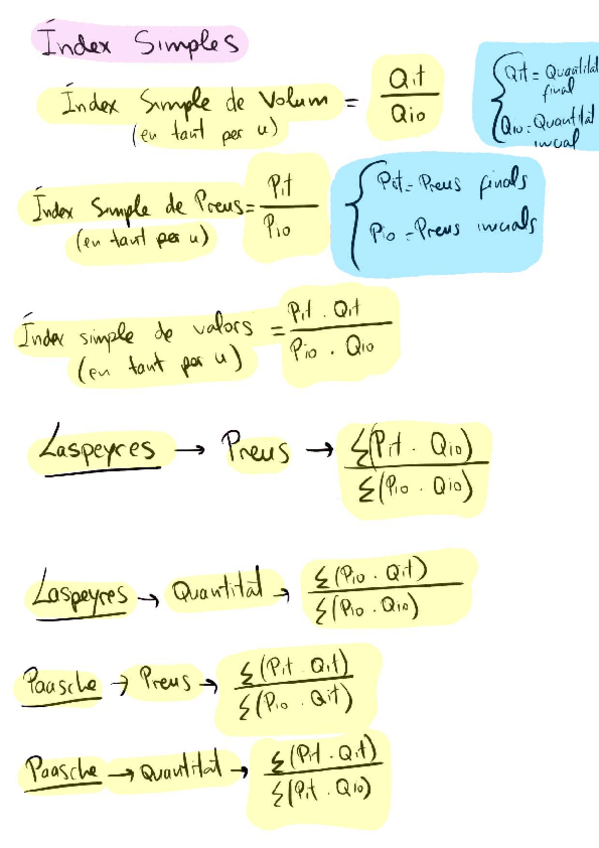 Índex Simples
Índex Simple de Volum = Qit / Qio
(en tant per u)
Qit = Quantitat final
Qio = Quantitat inicial
Índex Simple de Preus = Pit / Pio
(en tant per u)
Pit = Preus finals
Pio = Preus inicials
Índex simple de valors = Pit . Qit / Pio . Qio
(en tant per u)
Laspeyres → Preus → Σ(Pit . Qio) / Σ(Pio . Qio)
Laspeyres → Quantitat → Σ(Pio . Qit) / Σ(Pio . Qio)
Paasche → Preus → Σ(Pit . Qit) / Σ(Pio . Qit)
Paasche → Quantitat → Σ(Pit . Qit) / Σ(Pit . Qio)